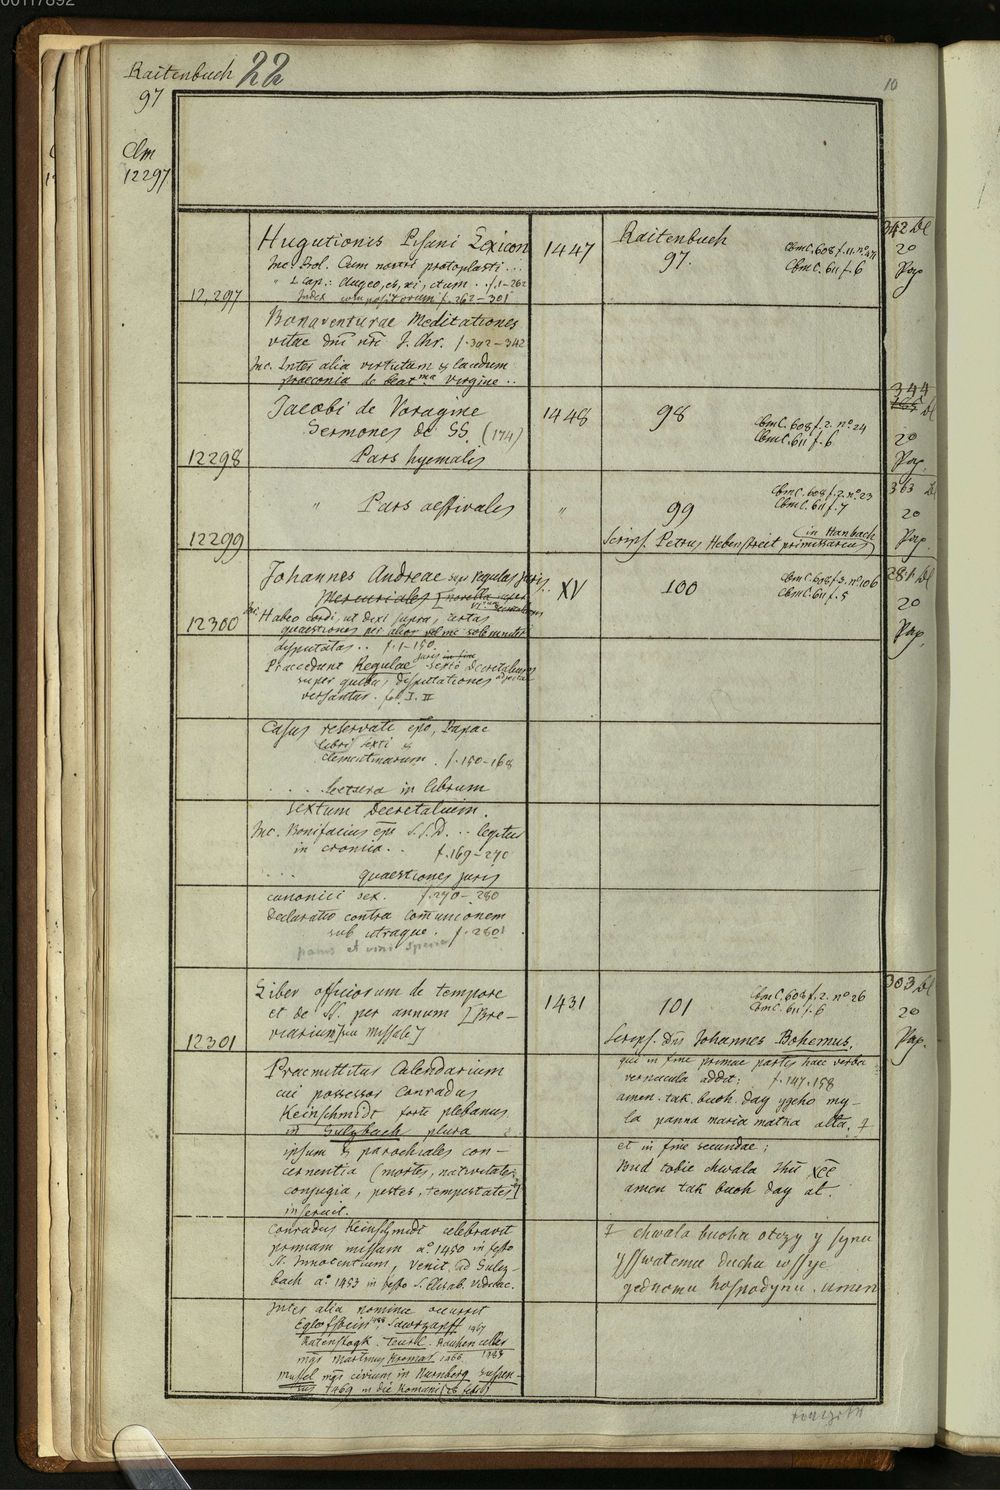 00117892
Raitenbuch 22
97
10
Clm
12297
12,297
Hugutionis Pisani Lexicon
Inc. Prol. Cum nostri protoplasti ...
" L cap.: Augeo, es, xi, ctum .. f. 1-262
Index compositorum f. 262-301
Bonaventurae Meditationes
vitae dni nri J. Chr. f. 302-342
Inc. Inter alia virtutum & laudum
praeconia de beat ma virgine ..
1447
Raitenbuch
97.
Cbm C. 608 f. 11. no. 47
Cbm C. 611 f. 6
342 Bl
2o
Pap
12298
Jacobi de Voragine
Sermones de SS. (174)
Pars hyemalis
1448
98
Cbm C. 608 f. 2. no. 24
Cbm C. 611 f. 6
344
Bl
2o
Pap.
12299
" Pars aestivales
"
99
Cbm C. 608 f. 2. no. 23
Cbm C. 611 f. 7
Scrips. Petrus Hebenstreit primissarius
(in Hanbach
363 Bl
2o
Pap.
12300
Johannes Andreae sup. regulas juris
Mercuriales [novella super
VI decretalium
Inc. Habeo cordi, ut dixi supra, certas
quaestiones per alior vel me solemniter
disputatas .. f. 1-150.
Praecedunt Regulae juris in fine sexti decretalium
super quibus disputationes
versantur. fol. I. II
XV
100
Cbm C. 608 f. 3. no. 106
Cbm C. 611 f. 5
281 Bl
2o
Pap
Casus reservati epo, Papae
libri sexti &
Clementinarum . f. 150-168
. . . . lectura in librum
sextum Decretalium.
Inc. Bonifacius eps S. S. D. .. legitur
in cronica .. f. 169-270
. . . quaestiones juris
canonici sex. f. 270-280
Declaratio contra comunionem
sub utraque . f. 280
panis et vini specie
12301
Liber officiorum de tempore
et de SS. per annum [Bre-
viarium sive missale]
Praemittitur Calendarium
cui possessor Conradus
Keinschmidt forte plebanus
in Sulzbach plura
ipsum & parochiales con-
cernentia (mortes, nativitates,
conjugia, pestes, tempestates)
inseruit.
Conradus Keinschmidt celebravit
primam missam ao. 1450 in festo
St. Innocentium, venit ad Sulz-
bach ao. 1453 in festo S. Elisab. viduae.
Inter alia nomina occurrit
Eglofstein
mgr Martinus Kromas 1466
mgr civium in Nürnberg suspen-
sus 1469 in die Romani (28 febr)
1431
101
Cbm C. 608 f. 2. no 26
Cbm C. 611 f. 6
Scrips. dns Johannes Bohemus.
qui in fine primae partis haec verba
vernacula addit: f. 147. 158
amen. tak. buoh. day ygeho my-
la panna maria matka alta. ‡
et in fine secundae:
Bud tobie chwala Jhu Xpe
amen tak buoh day at.
‡ chwala buohu otczy y synu
y sswatemu duchu wssye
gednomu hospodynu . amen
303 Bl
2o
Pap.